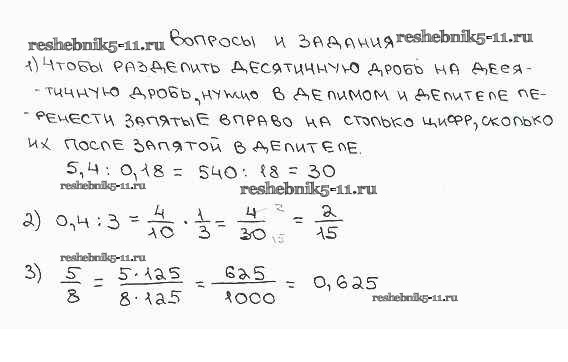 reshebnik5-11.ru ВОПРОСЫ И ЗАДАНИЯ reshebnik5-11.ru
1) ЧТОБЫ РАЗДЕЛИТЬ ДЕСЯТИЧНУЮ ДРОБЬ НА ДЕСЯ-
-ТИЧНУЮ ДРОБЬ, НУЖНО В ДЕЛИМОМ И ДЕЛИТЕЛЕ ПЕ-
-РЕНЕСТИ ЗАПЯТЫЕ ВПРАВО НА СТОЛЬКО ЦИФР, СКОЛЬКО
ИХ ПОСЛЕ ЗАПЯТОЙ В ДЕЛИТЕЛЕ.
5,4 : 0,18 = 540 : 18 = 30
reshebnik5-11.ru reshebnik5-11.ru
2) 0,4 : 3 = 4/10 · 1/3 = 4/30 2 15 = 2/15
reshebnik5-11.ru
3) 5/8 = 5·125/8·125 = 625/1000 = 0,625
reshebnik5-11.ru